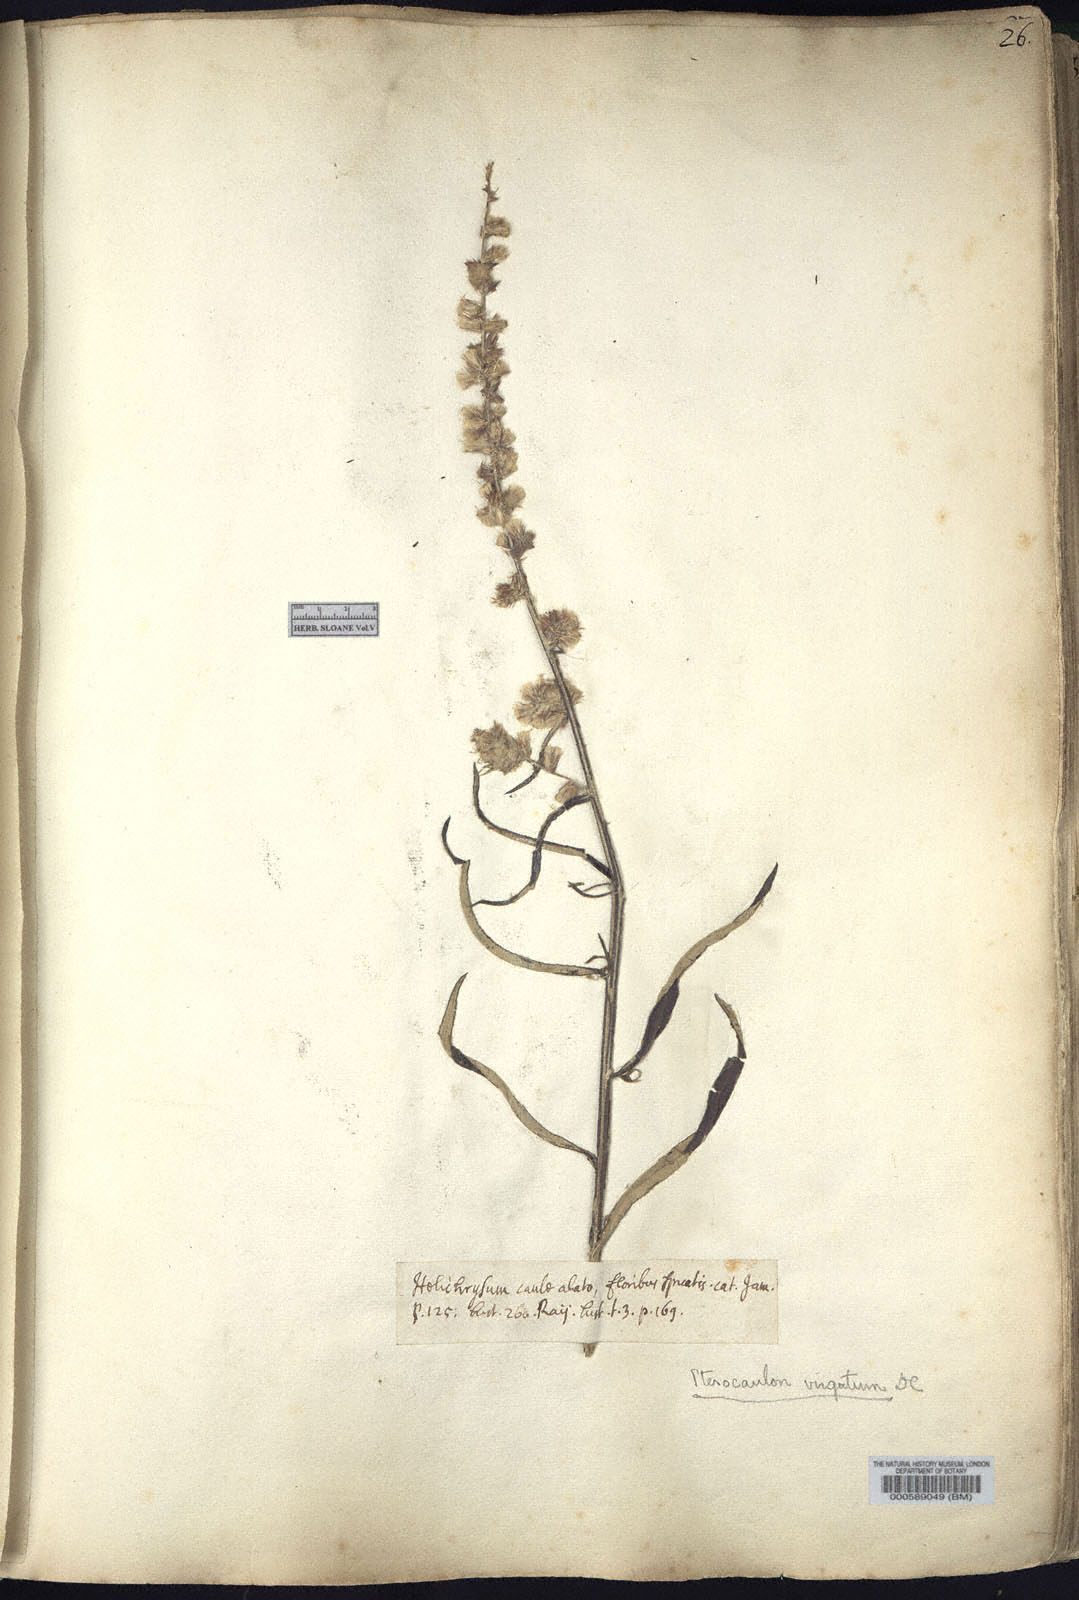 26.
HERB. SLOANE Vol.V
Helichrysum caule alato, floribus spicatis. cat. Jam.
p. 125. hist. 260. Raij. hist. t. 3. p. 169.
Pterocaulon virgatum DC
THE NATURAL HISTORY MUSEUM, LONDON
DEPARTMENT OF BOTANY
000589049 (BM)